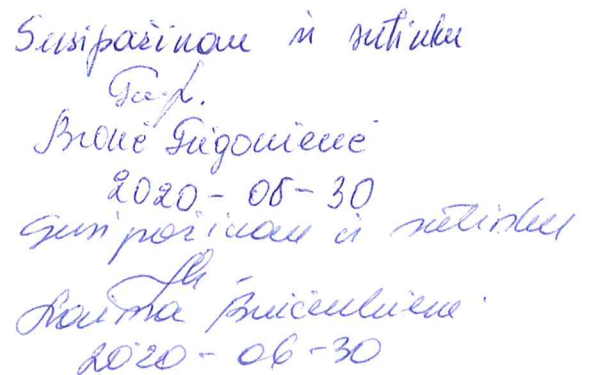 Susipažinau ir sutinku
Bronė Trigonienė
2020-06-30
Susipažinau ir sutinku
Laima
2020-06-30